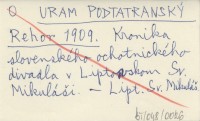 O URAM PODTATRANSKÝ
Rehor 1909. Kronika
slovenského ochotníckeho
divadla v Liptovskom Sv.
Mikuláši. – Lipt. Sv. Mikuláš